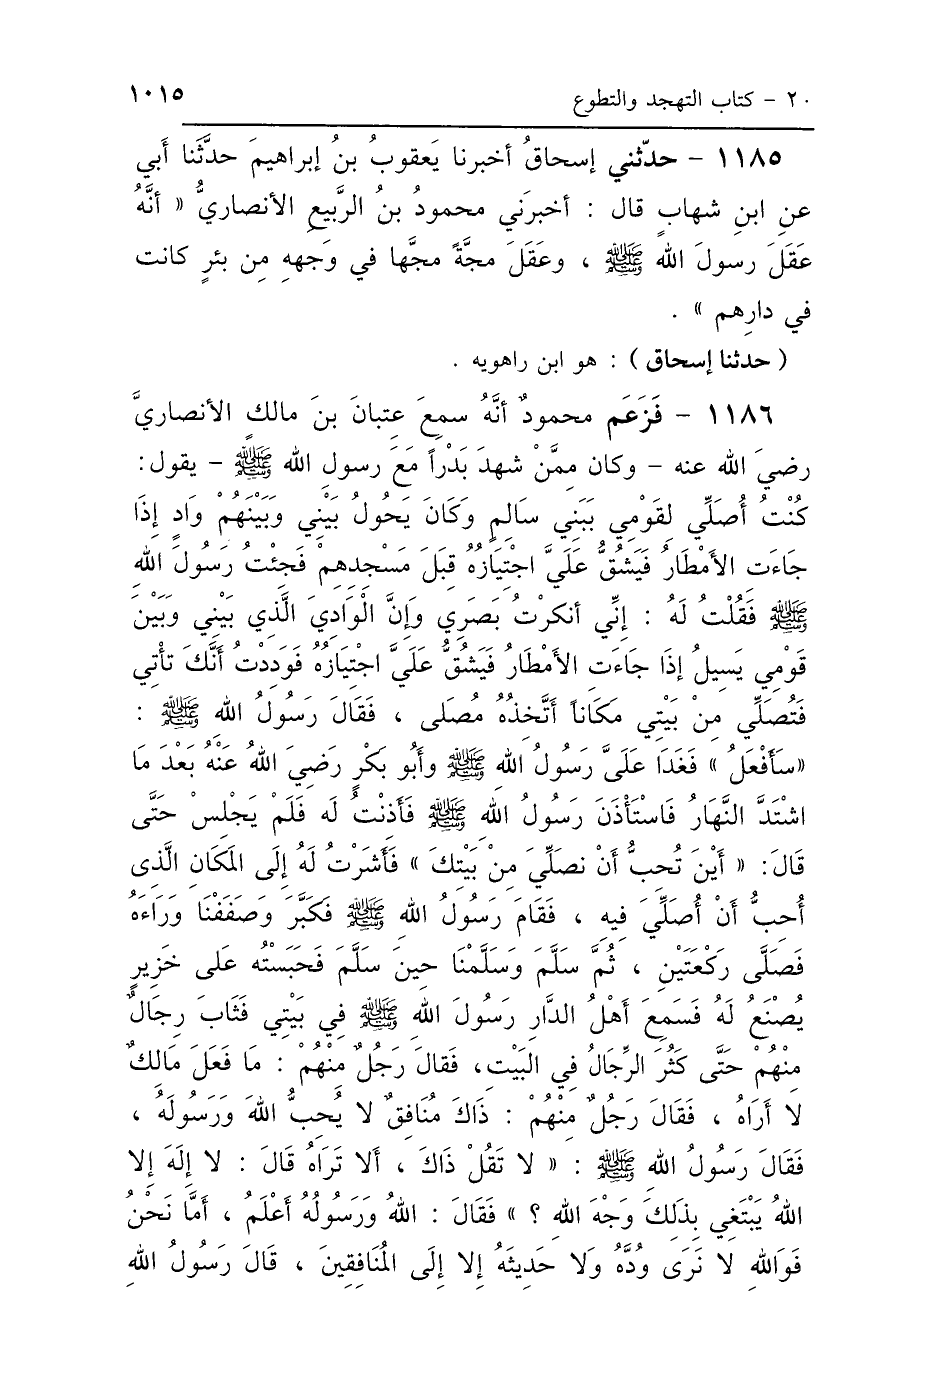 ٢٠ - كتاب التهجد والتطوع ١٠١٥
١١٨٥ - حدّثني إسحاقُ أخبرنا يَعقوبُ بنُ إبراهيمَ حدَّثَنا أبي
عنِ ابنِ شهابٍ قال : أخبرَني محمودُ بنُ الرَّبيعِ الأنصاريُّ « أنَّهُ
عقَلَ رسولَ الله ﷺ ، وعقَلَ مجَّةً مجَّها في وَجههِ من بئرٍ كانت
في دارِهم » .
( حدثنا إسحاق ) : هو ابن راهويه .
١١٨٦ - فَزَعَم محمودٌ أنَّهُ سمعَ عِتبانَ بنَ مالكٍ الأنصاريَّ
رضيَ الله عنه - وكان ممَّنْ شهدَ بَدْراً مَعَ رسولِ الله ﷺ - يقول:
كُنْتُ أُصَلِّي لِقَوْمِي بِبَنِي سَالِمٍ وَكَانَ يَحُولُ بَيْنِي وَبَيْنَهُمْ وَادٍ إِذَا
جَاءَتِ الأَمْطَارُ فَيَشُقُّ عَلَيَّ اجْتِيَازُهُ قِبَلَ مَسْجِدِهِمْ فَجِئْتُ رَسُولَ الله
ﷺ فَقُلْتُ لَهُ : إِنِّي أنكرْتُ بَصَرِي وَإِنَّ الْوَادِيَ الَّذِي بَيْنِي وَبَيْنَ
قَوْمِي يَسِيلُ إِذَا جَاءَتِ الأَمْطَارُ فَيَشُقُّ عَلَيَّ اجْتِيَازُهُ فَوَدِدْتُ أَنَّكَ تَأْتِي
فَتُصَلِّي مِنْ بَيْتِي مَكَاناً أَتَّخِذُهُ مُصَلى ، فَقَالَ رَسُولُ الله ﷺ :
«سَأَفْعَلُ » فَغَدَا عَلَيَّ رَسُولُ الله ﷺ وأَبُو بَكْرٍ رَضِيَ اللهُ عَنْهُ بَعْدَ مَا
اشْتَدَّ النَّهَارُ فَاسْتَأْذَنَ رَسُولُ الله ﷺ فَأَذِنْتُ لَه فَلَمْ يَجْلِسْ حَتَّى
قَالَ: « أَيْنَ تُحِبُّ أَنْ نصَلِّيَ مِنْ بَيْتِكَ » فَأَشَرْتُ لَهُ إِلَى المَكَانِ الَّذِى
أُحِبُّ أَنْ أُصَلِّيَ فِيهِ ، فَقَامَ رَسُولُ اللهِ ﷺ فَكَبَّرَ وَصَفَفْنَا وَرَاءَهُ
فَصَلَّى رَكْعَتَيْنِ ، ثُمَّ سَلَّمَ وَسَلَّمْنَا حِينَ سَلَّمَ فَحَبَسْتُه عَلى خَزِيرٍ
يُصْنَعُ لَهُ فَسَمِعَ أَهْلُ الدَّارِ رَسُولَ اللهِ ﷺ فِي بَيْتِي فَثَابَ رِجَالٌ
مِنْهُمْ حَتَّى كَثُرَ الرِّجَالُ فِي البَيْتِ، فَقَالَ رَجُلٌ مِنْهُمْ : مَا فَعَلَ مَالكٌ
لا أَرَاهُ ، فَقَالَ رَجُلٌ مِنْهُمْ : ذَاكَ مُنَافِقٌ لا يُحِبُّ اللهَ وَرَسُولَهُ ،
فَقَالَ رَسُولُ اللهِ ﷺ : « لا تَقُلْ ذَاكَ ، أَلا تَرَاهُ قَالَ : لا إِلَهَ إِلا
اللهُ يَبْتَغِي بِذَلِكَ وَجْهَ اللهِ ؟ » فَقَالَ : اللهُ وَرَسُولُهُ أَعْلَمُ ، أَمَّا نَحْنُ
فَوَاللهِ لا نَرَى وُدَّهُ وَلا حَدِيثَهُ إِلا إِلَى المُنَافِقِينَ ، قَالَ رَسُولُ اللهِ